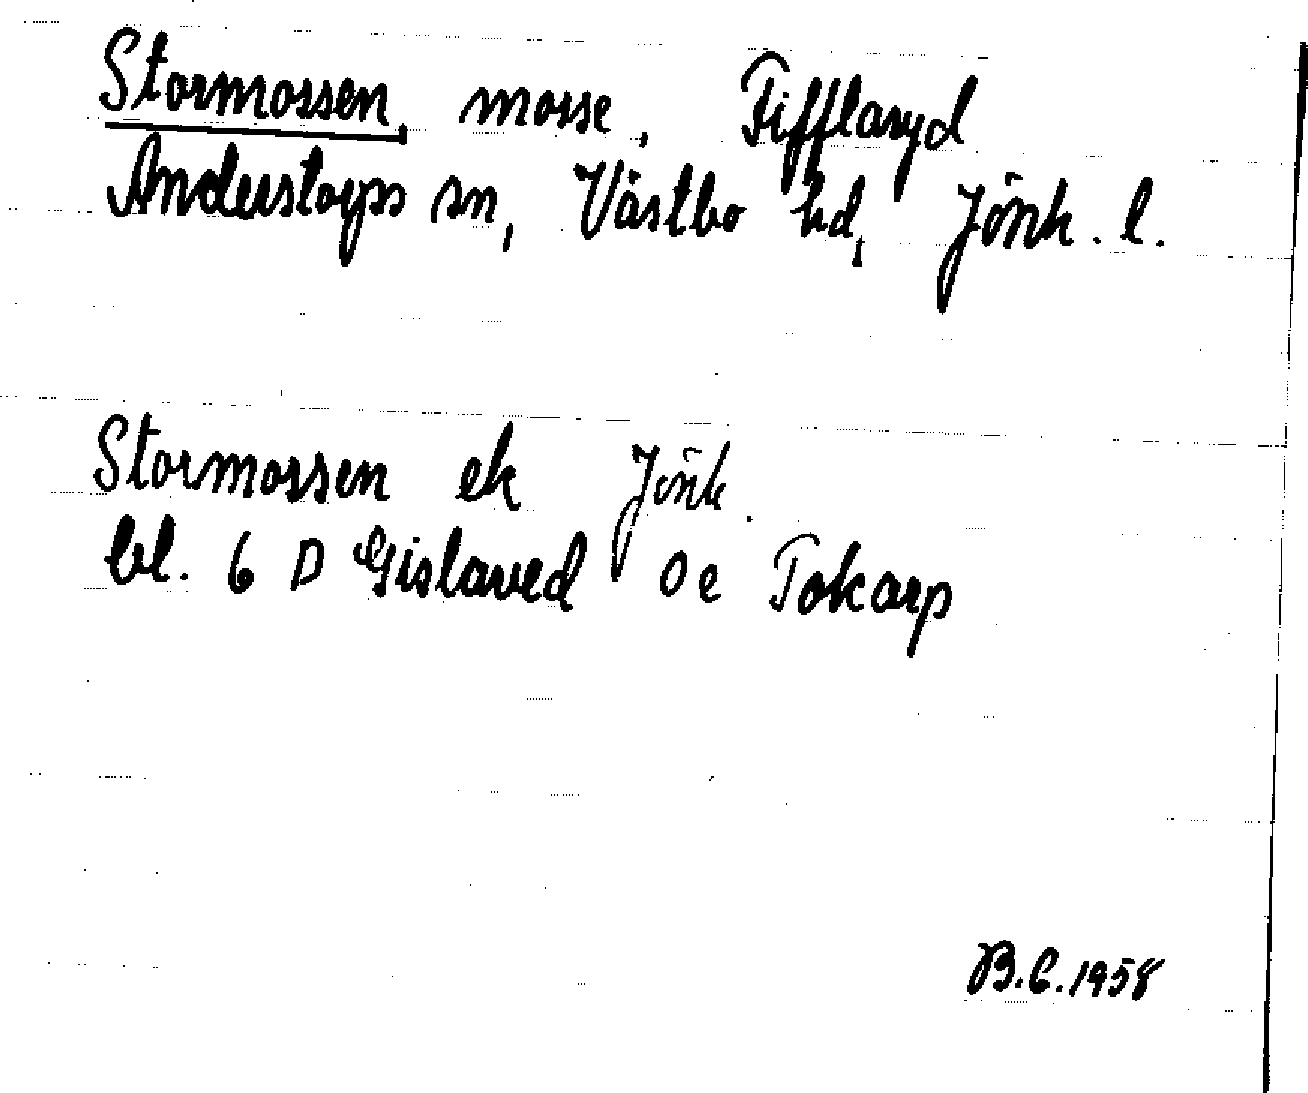 Stormossen, mosse, Fifflaryd
Anderstorps sn, Västbo hd, Jönk. l.
Stormossen ek Jönk.
bl. 6 D Gislaved 0 e Tokarp
B.C. 1958